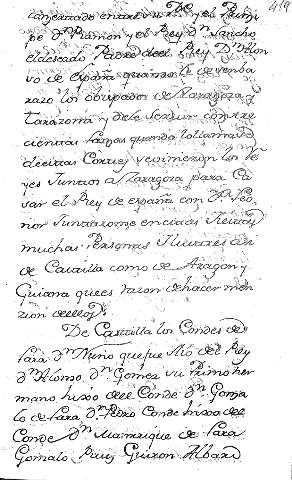 419
concertado entre el Rey y el Principe
pe dn Ramon y el Rey dn Sancho
el deseado Padre deel Rey dn Alon
so de españa quando le desenba
razo los obispados de Zaragoza y
tarazona y de le servir con tre
cientas Lanzas quando lo llamase
decidas Cortes y se vinieron los Re
yes Juntos a Zaragoza para Ca
sar el Rey de españa con Da Leo
nor Juntaronse en ciudad
muchas Personas Ilustres asi
de Castilla como de Aragon y
Guiana que es razon de hacer men
cion de ellos.
De Castilla los Condes de
Lara dn Nuño que fue tio del Rey
dn Alonso dn Gomez su Primo her
mano hixo deel Conde dn Gonza
lo de Lara dn Pedro Conde hixo deel
Conde dn Manrrique de Lara
Gonzalo Ruiz Guiron Albaro